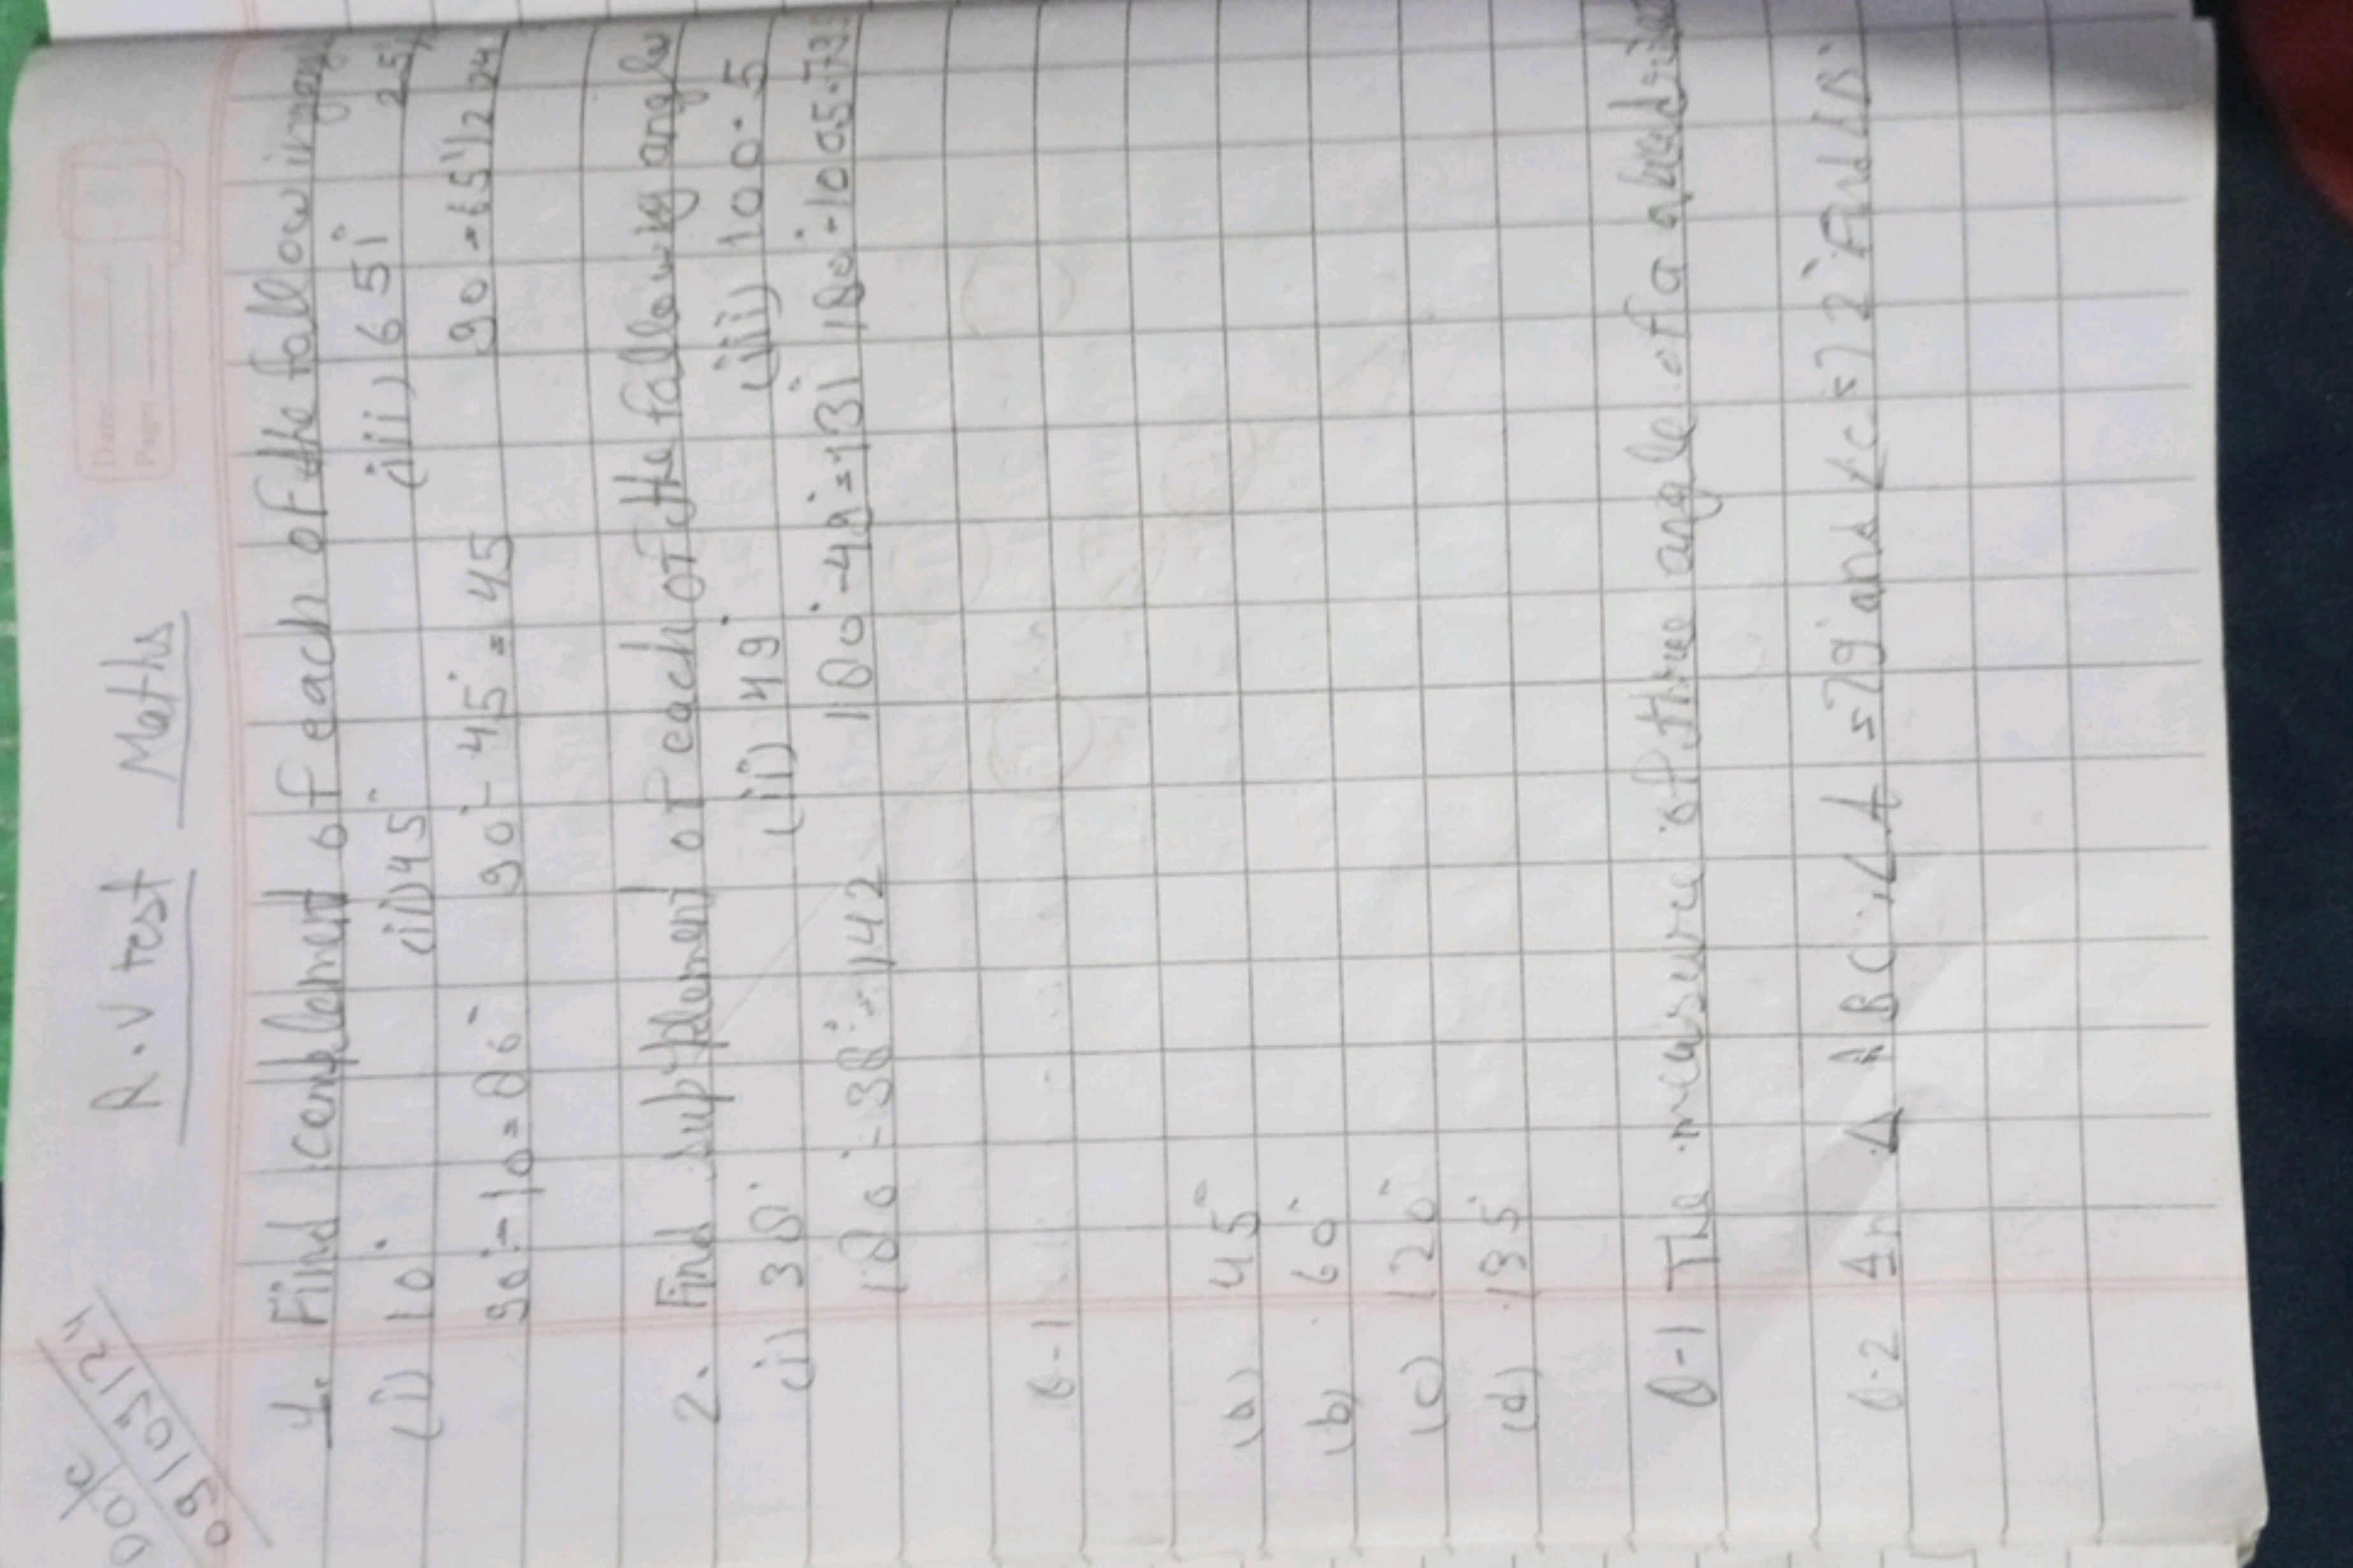 Date
09/03/24
R.V test Maths
Date
Page
1. Find complement of each of the following
(i) 10° (ii) 45° (iii) 65 1
90° - 10 = 80° 90° - 45° = 45 90° - 65 1/2 24
2. Find supplement of each of the following angle
(i) 38° (ii) 49° (iii) 100.5
180° - 38° = 142 180° - 49° = 131 180° - 100.5 = 79.
Q-1
(a) 45°
(b) 60°
(c) 120°
(d) 135°
Q-1 The measure of three angle of a
Q-2 In Δ ABC, ∠A = 79° and ∠C = 72° Find ∠B.